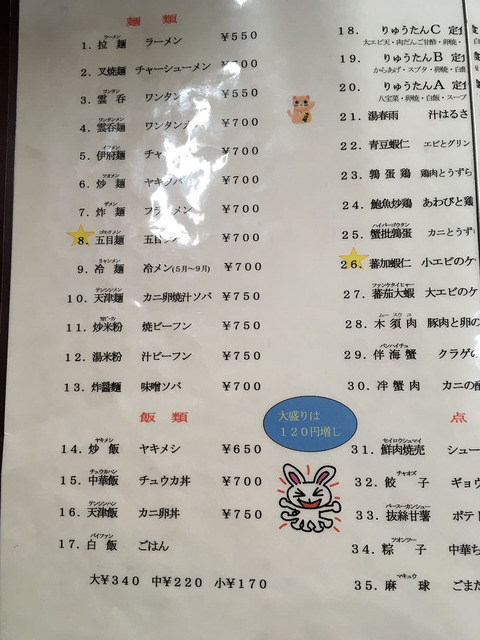 麺類
1. 拉麺 ラーメン ラーメン ¥550
2. 叉焼麺 チャーシューメン
3. 雲呑 ワンタン ワンタン ¥550
4. 雲呑麺 ワンタンメン ワンタン ¥700
5. 伊府麺 イフメン ¥700
6. 炒麺 ヤキソバ ¥700
7. 炸麺 ザメン ¥700
8. 五目麺 ゴモクメン ¥700
9. 冷麺 リャンメン 冷メン(5月〜9月) ¥700
10. 天津麺 テンシンメン カニ卵焼汁ソバ ¥750
11. 炒米粉 焼ビーフン ¥750
12. 湯米粉 汁ビーフン ¥750
13. 炸醤麺 味噌ソバ ¥700
飯類
14. 炒飯 ヤキメシ ヤキメシ ¥650
15. 中華飯 チュウカハン チュウカ丼 ¥700
16. 天津飯 テンシンハン カニ卵丼 ¥750
17. 白飯 パイファン ごはん
大¥340 中¥220 小¥170
大盛りは
120円増し
18. りゅうたんC 定食
大エビ天・肉だんご甘酢・卵焼・
19. りゅうたんB 定食
からあげ・スブタ・卵焼・白飯
20. りゅうたんA 定食
八宝菜・卵焼・白飯・スープ
21. 湯春雨 汁はるさ
22. 青豆蝦仁 エビとグリン
23. 鶉蛋鶏 鶏肉とうずら
24. 鮑魚炒鶏 あわびと鶏
25. 蟹批鶉蛋 カニとうず
26. 蕃加蝦仁 小エビのケ
27. 蕃茄大蝦 ファンケタイヒャー 大エビのケ
28. 木須肉 ムースウユ 豚肉と卵の
29. 伴海蟹 バンハイチュ クラゲの
30. 冲蟹肉 カニの
点
31. 鮮肉焼売 セイロウシュマイ シュー
32. 餃子 チャオズ ギョウ
33. 抜絲甘薯 バースーカンシュー ポテト
34. 粽子 ツオンツー 中華ち
35. 麻球 マキュウ ごまだ